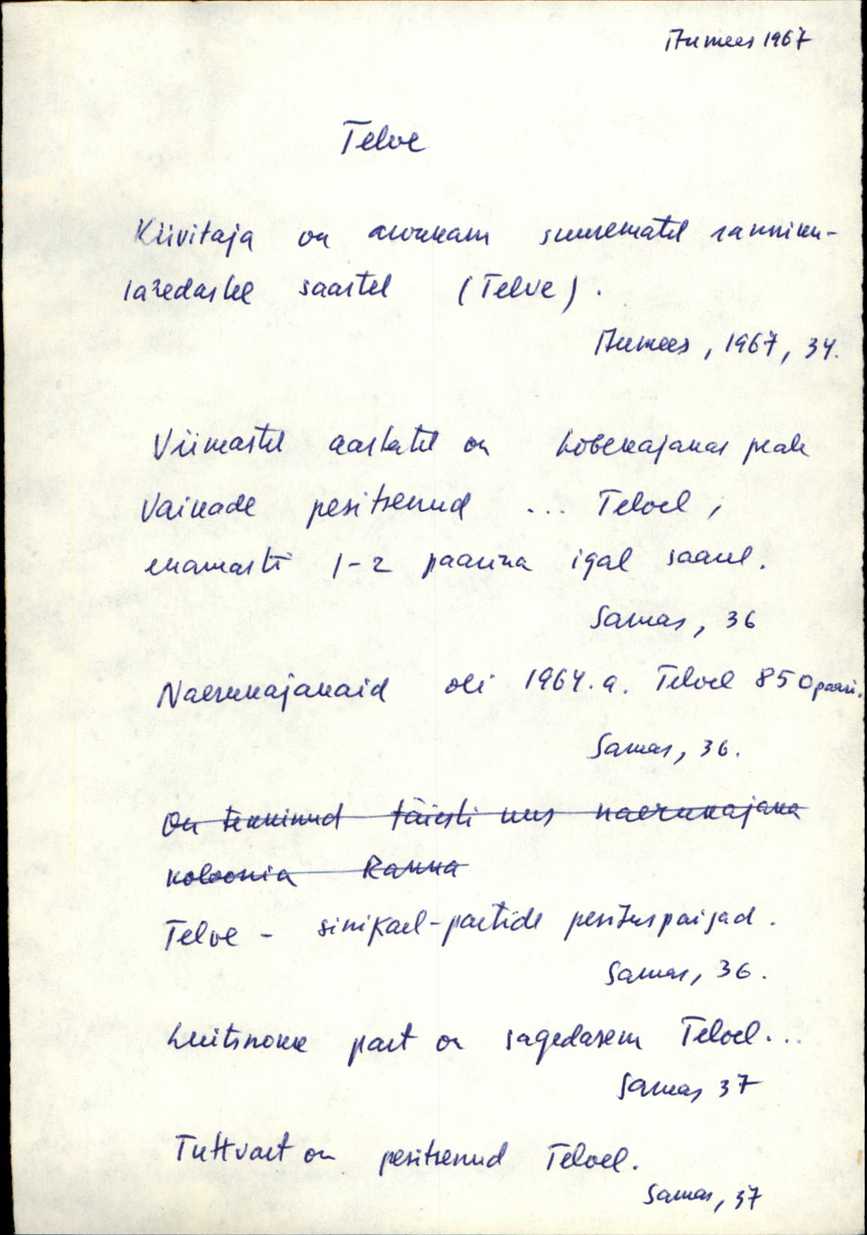 Aumees 1967
Telve
Kiivitaja on arvukam suurematel ranniku-
lähedastel saartel (Telve).
Aumees, 1967, 34.
Viimastel aastatel on hõbekajakas peale
vainade pesitsenud ... Telvel,
enamasti 1-2 paarina igal saarel.
Samas, 36
Naerukajakaid oli 1964.a. Telvel 850 paari.
Samas, 36.
On tekkinud täiesti uus naerukajaka
koloonia Ranna
Telve - sinikael-partide pesituspaigad.
Samas, 36.
Luitsnokk part on sagedasem Telvel...
Samas 37
Tuttvart on pesitsenud Telvel.
Samas, 37